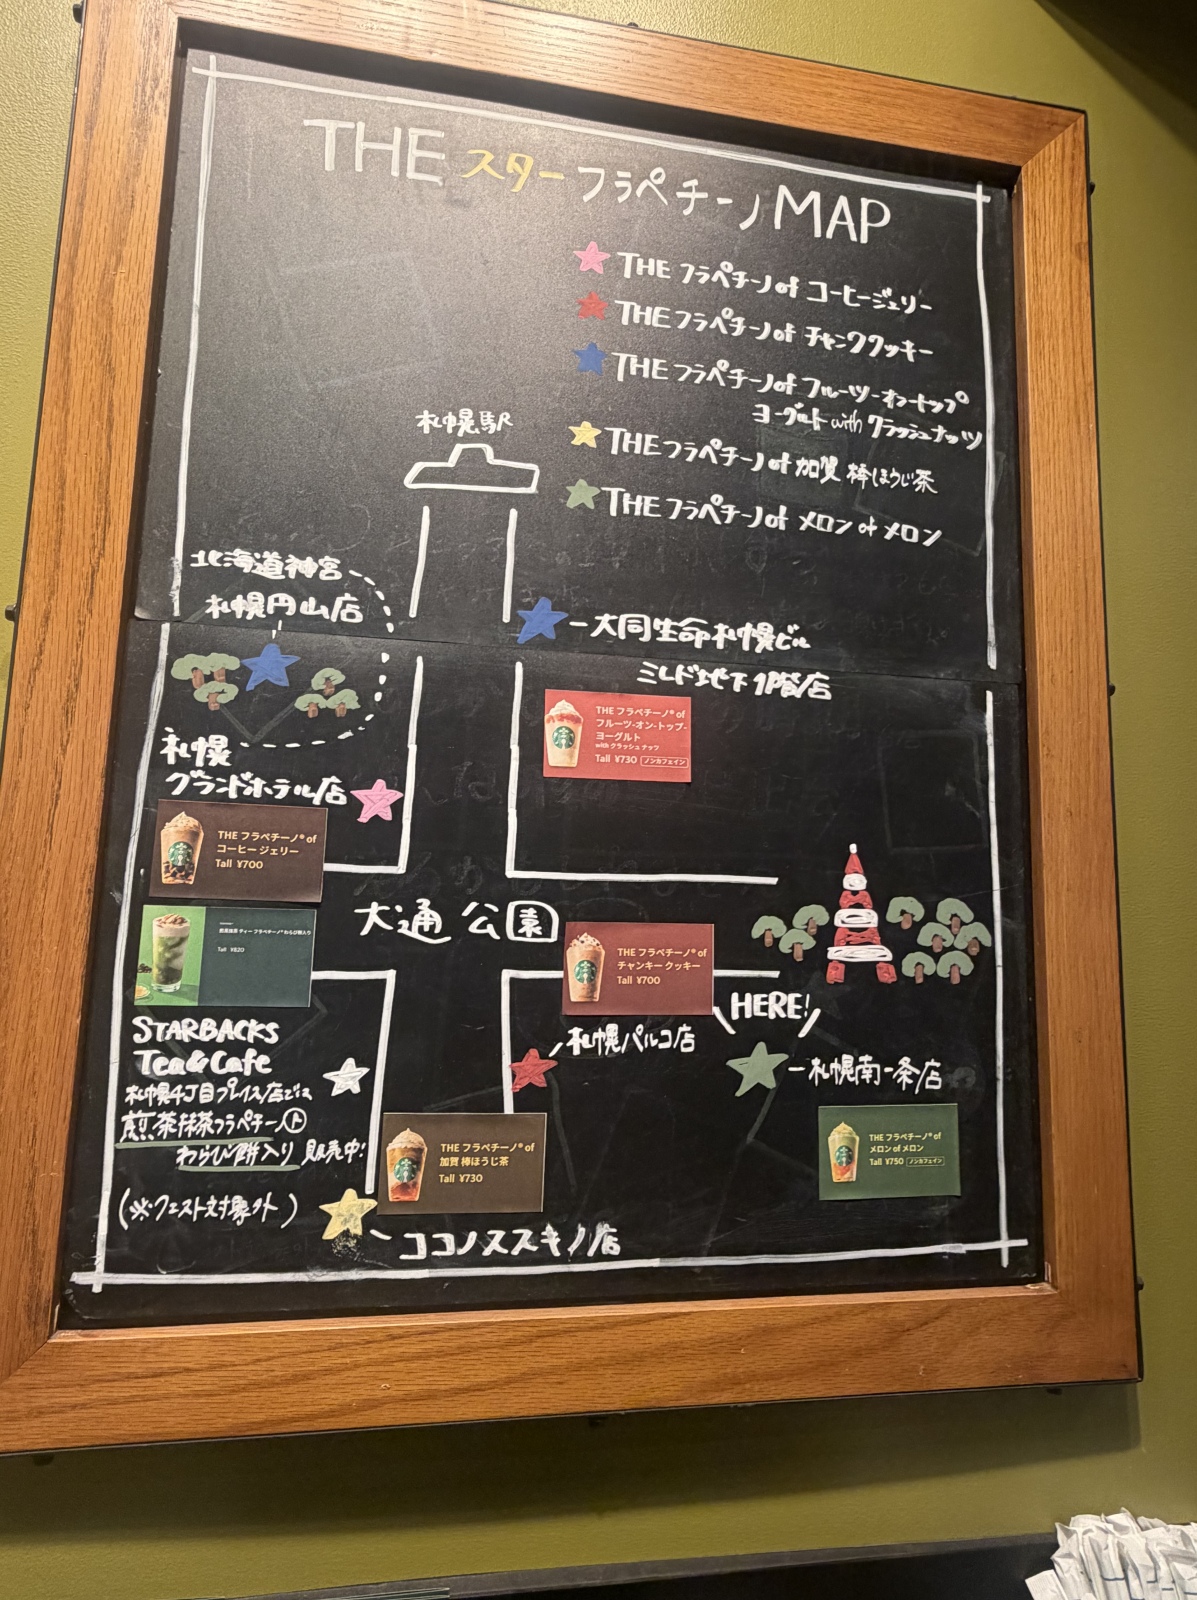 THE スターフラペチーノ MAP
THE フラペチーノ of コーヒージェリー
THE フラペチーノ of チャンククッキー
THE フラペチーノ of フルーツ-オン-トップ
ヨーグルト with クラッシュナッツ
THE フラペチーノ of 加賀 棒ほうじ茶
THE フラペチーノ of メロン of メロン
札幌駅
北海道神宮
札幌円山店
大同生命札幌ビル
ミレド地下1階店
THE フラペチーノ® of
フルーツ-オン-トップ-
ヨーグルト
with クラッシュ ナッツ
Tall ¥730 ノンカフェイン
札幌
グランドホテル店
THE フラペチーノ® of
コーヒー ジェリー
Tall ¥700
大通 公園
Tall ¥820
THE フラペチーノ® of
チャンキー クッキー
Tall ¥700
HERE!
札幌パルコ店
札幌南一条店
STARBACKS
Tea&Cafe
札幌4丁目プレイス店では
煎茶抹茶フラペチーノ ト
わらび餅入り 販売中!
(※クエスト対象外)
THE フラペチーノ® of
加賀 棒ほうじ茶
Tall ¥730
THE フラペチーノ® of
メロン of メロン
Tall ¥750 ノンカフェイン
ココノススキノ店